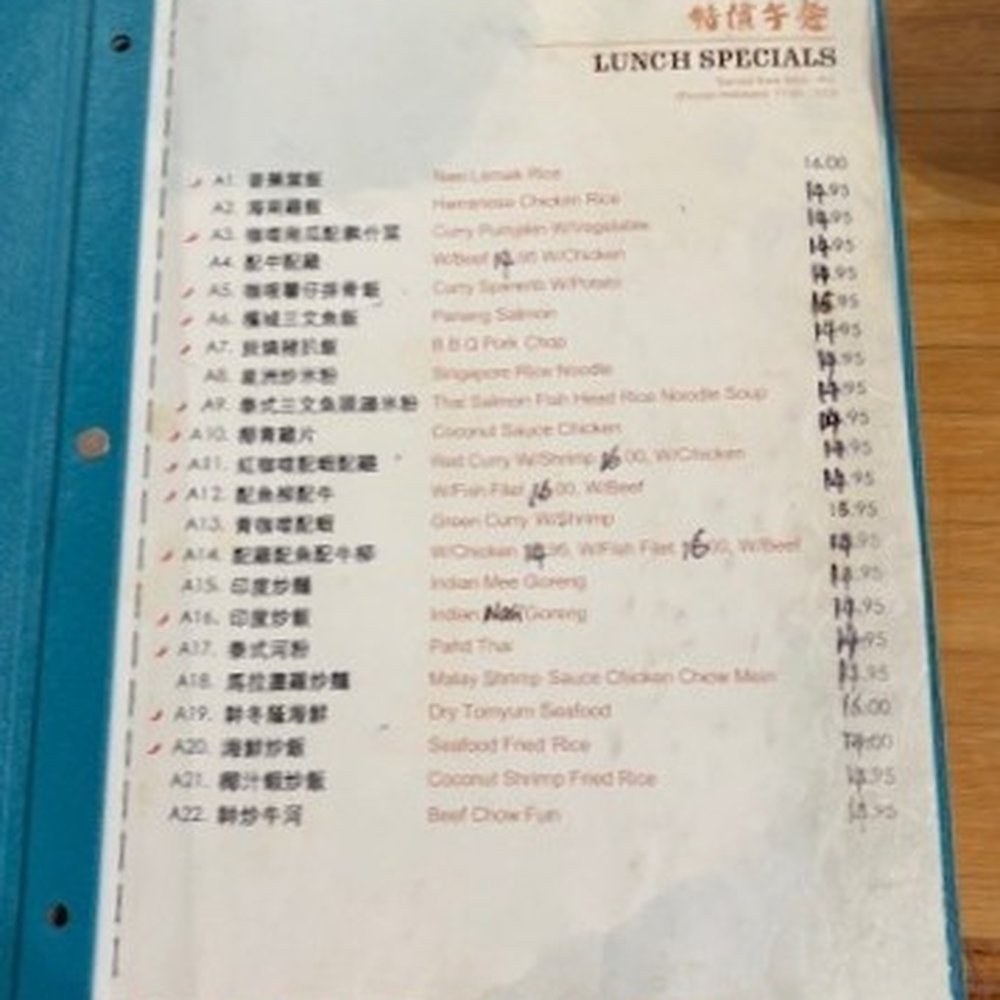 特價午餐
LUNCH SPECIALS
A1. 香葉飯 Nasi Lemak Rice 16.00
A2. 海南雞飯 Hainanese Chicken Rice 14.95
A3. 咖喱南瓜配雜什菜 Curry Pumpkin W/Vegetable 14.95
A4. 配牛配雞 W/Beef 14.95 W/Chicken 14.95
A5. 咖喱薯仔排骨飯 Curry Spareribs W/Potato 14.95
A6. 檳城三文魚飯 Penang Salmon 16.95
A7. 炭燒豬扒飯 B.B.Q Pork Chop 14.95
A8. 星洲炒米粉 Singapore Rice Noodle 14.95
A9. 泰式三文魚頭湯米粉 Thai Salmon Fish Head Rice Noodle Soup 14.95
A10. 椰青雞片 Coconut Sauce Chicken 14.95
A11. 紅咖喱配蝦配雞 Red Curry W/Shrimp 16.00, W/Chicken 14.95
A12. 配魚柳配牛 W/Fish Filet 16.00, W/Beef 14.95
A13. 青咖喱配蝦 Green Curry W/Shrimp 15.95
A14. 配雞配魚配牛柳 W/Chicken 14.95, W/Fish Filet 16.00, W/Beef 14.95
A15. 印度炒麵 Indian Mee Goreng .95
A16. 印度炒飯 Indian Nasi Goreng 14.95
A17. 泰式河粉 Pahd Thai 14.95
A18. 馬拉盞雞炒麵 Malay Shrimp Sauce Chicken Chow Mein .95
A19. 幹冬蔭海鮮 Dry Tomyum Seafood 16.00
A20. 海鮮炒飯 Seafood Fried Rice .00
A21. 椰汁蝦炒飯 Coconut Shrimp Fried Rice .95
A22. 幹炒牛河 Beef Chow Fun .95